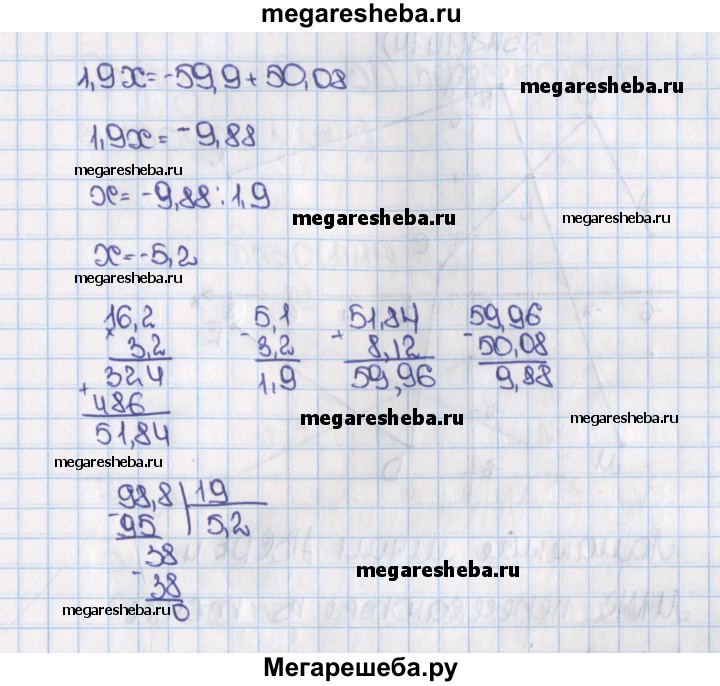 megaresheba.ru
1,9x=-59,9+50,08
megaresheba.ru
1,9x=-9,88
megaresheba.ru
x=-9,88:1,9
megaresheba.ru megaresheba.ru
x=-5,2
megaresheba.ru megaresheba.ru megaresheba.ru
16,2 5,1 51,84 59,96
× 3,2 - 3,2 + 8,12 - 50,08
32,4 1,9 59,96 9,88
+ 486
megaresheba.ru megaresheba.ru
51,84
megaresheba.ru megaresheba.ru
98,8 19
- 95 5,2
38
- 38
megaresheba.ru
megaresheba.ru 0
Мегарешеба.ру